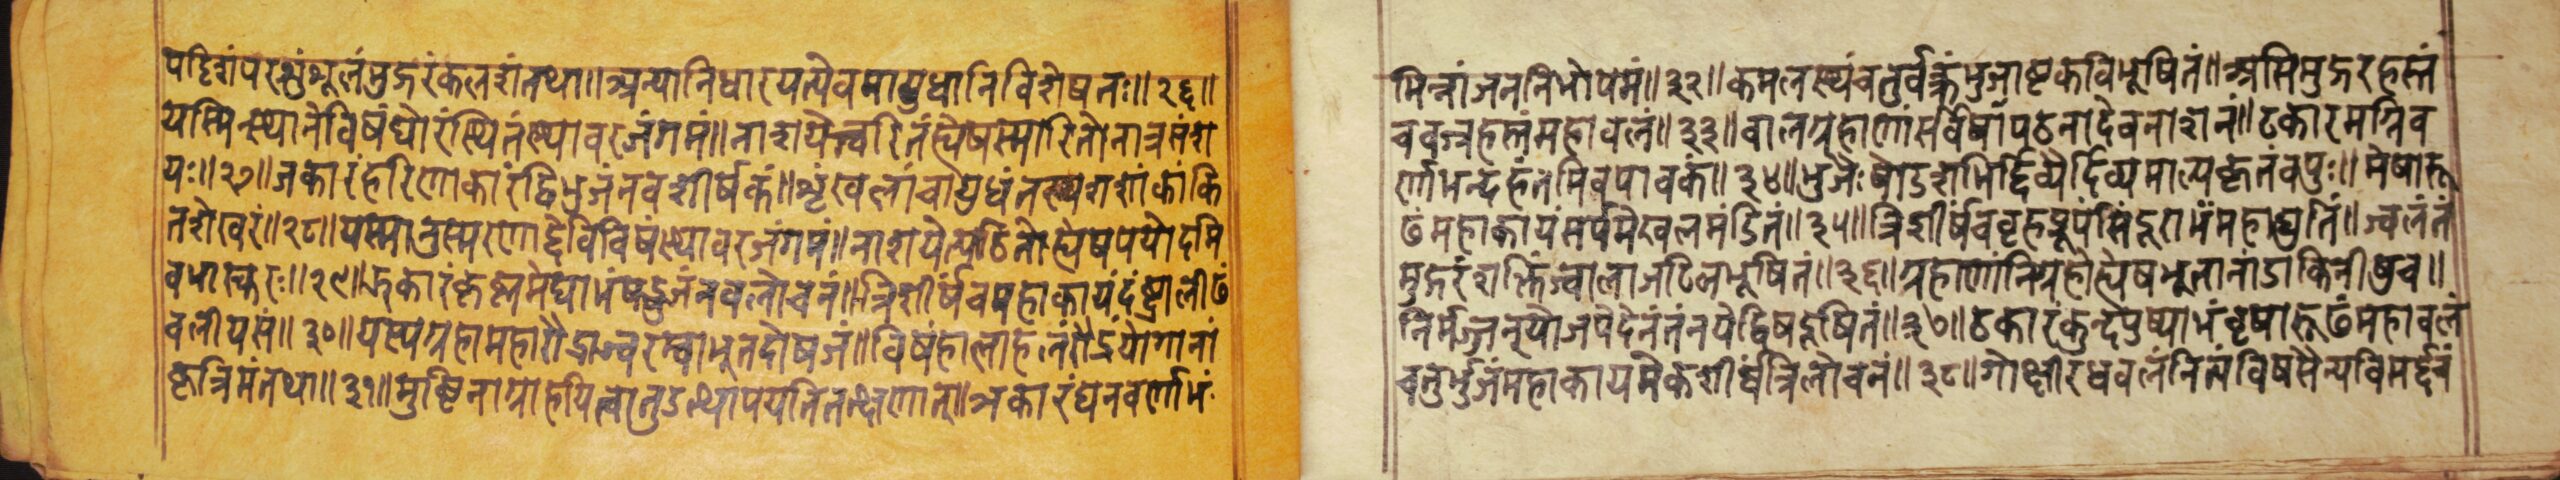 पट्टिशं परशुं शूलं मुद्गरं कलशं तथा॥ अन्यानि धारयत्येवमायुधानि विशेषतः॥ २६॥
यस्मिन्स्थाने विषं घोरं स्थितं स्थावरजंगमं॥ नाशयेत्त्वरितं ह्येष स्मारितो नात्र संश
यः॥ २७॥ जकारं हरिणाकारं द्विभुजं नवशीर्षकं॥ शृंखलां चायुधं तस्य शशांकांकि
तशेखरं॥ २८॥ यस्यानुस्मरणाद्देवि विषं स्थावरजंगमं॥ नाशयेत्पठितो ह्येष पयोदमि
व भास्करः॥ २९॥ झकारं कृष्णमेघाभं षड्भुजं नवलोचनं॥ त्रिशीर्षं च महाकायं दंष्ट्रालीढं
वलीयसं॥ ३०॥ यस्य ग्रहा महारौद्रा ज्वरश्चाभूतदोषजं॥ विषं हालाहलं रौद्रं योगानां
कृत्रिमं तथा॥ ३१॥ मुष्टिना ग्राहयित्वा तु उत्थापयति तत्क्षणात्॥ ञकारं घनवर्णाभं
भिन्नांजननिभोपमं॥ ३२॥ कमलस्थं चतुर्वक्त्रं भुजाष्टकविभूषितं॥ असिमुद्गरहस्तं
च वज्रहस्तं महावलं॥ ३३॥ वालग्रहाणां सर्वेषां पठनादेव नाशनं॥ टकारमग्निव
र्णाभन्दहंतमिव पावकं॥ ३४॥ भुजैः षोडशभिर्द्दिव्यैर्दिव्यमाल्यकृतं वपुः॥ मेषारू
ढं महाकायं सर्पमेखलमंडितं॥ ३५॥ त्रिशीर्षं च वृहद्रूपं सिंदूराभं महाद्युतिं॥ ज्वलंतं
मुद्गरं शक्तिं ज्वालाजटिलभूषितं॥ ३६॥ ग्रहाणां निग्रहो ह्येष भूतानां डाकिनीषु च॥
निर्मज्जनुयोजपेदेनं तं न येद्विषदूषितं॥ ३७॥ ठकारं कुन्दपुष्पाभं वृषारूढं महावलं
चतुर्भुजं महाकायमेकशीर्षं त्रिलोचनं॥ ३८॥ गोक्षीरधवलं नित्यं विषसैन्यविमर्द्दनं